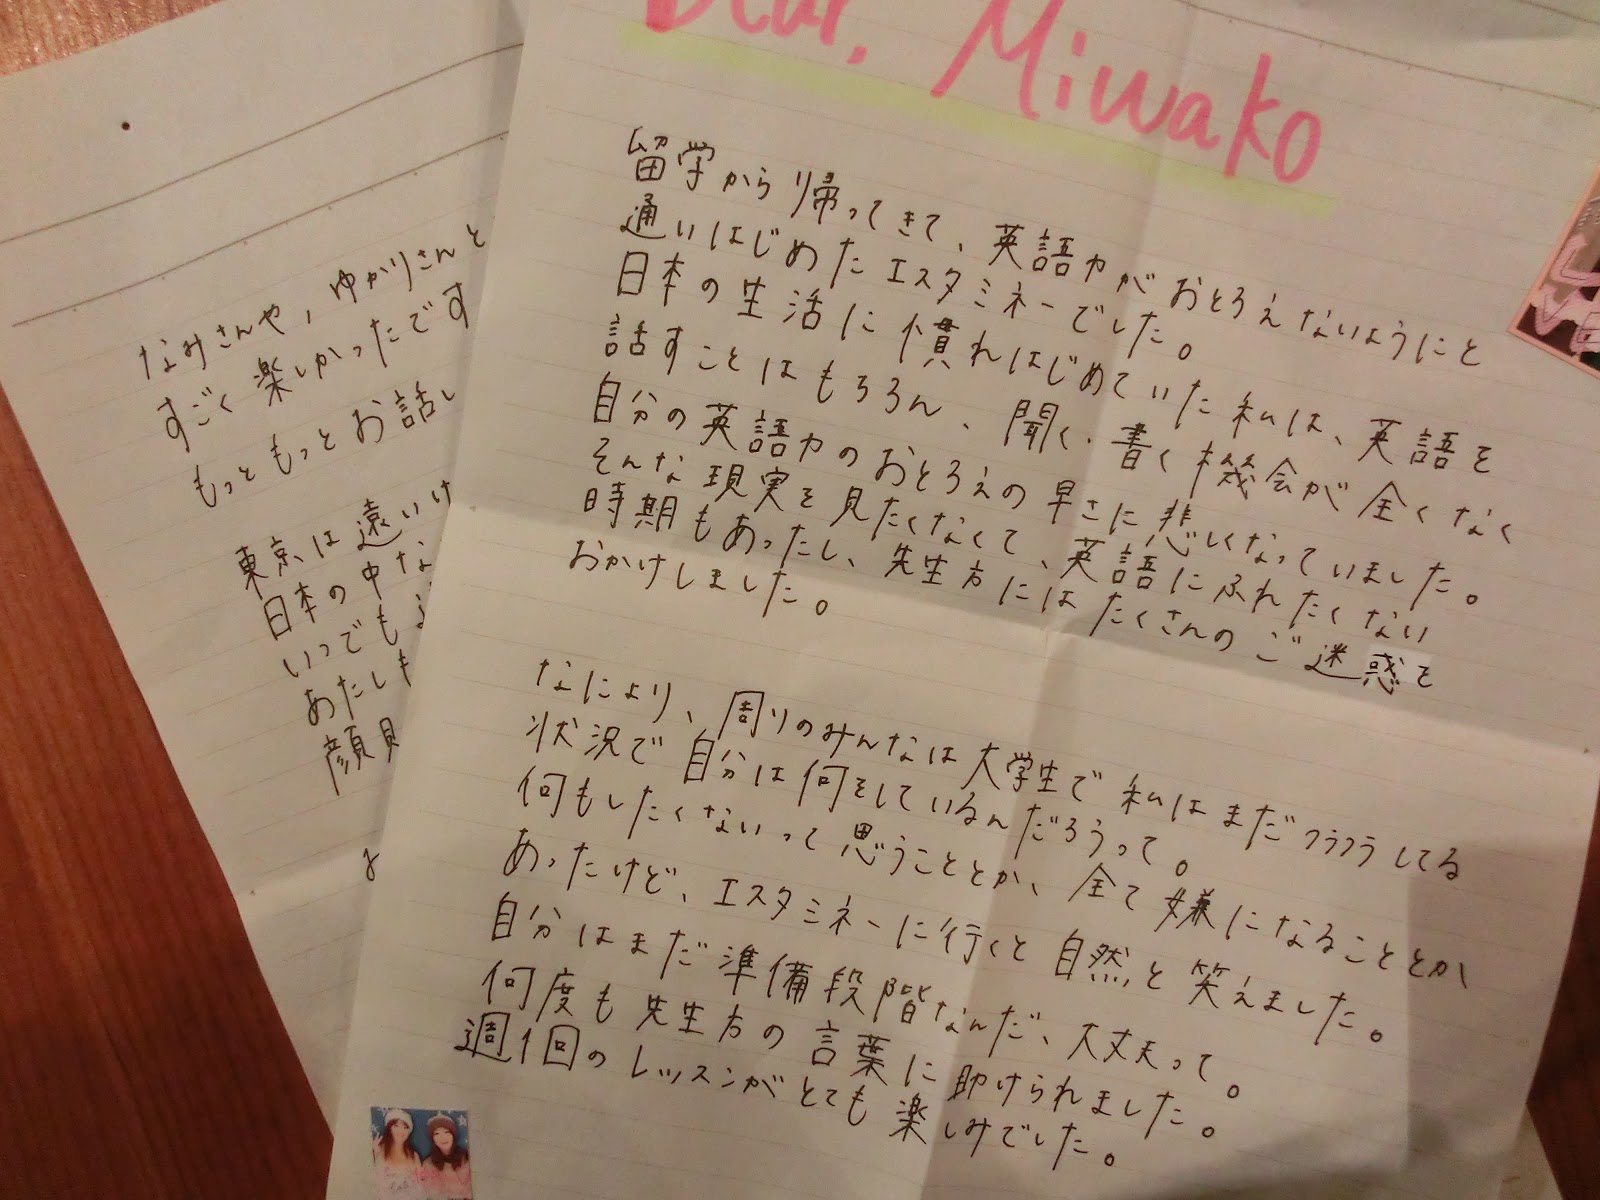 Dear, Miwako
留学から帰ってきて、英語力がおとろえないようにと
通いはじめたエスタミネーでした。
日本の生活に慣れはじめていた私は、英語を
話すことはもちろん、聞く、書く機会が全くなく
自分の英語力のおとろえの早さに悲しくなっていました。
そんな現実を見たくなくて、英語にふれたくない
時期もあったし、先生方にはたくさんのご迷惑を
おかけしました。
なにより、周りのみんなは大学生で私はまだフラフラしてる
状況で自分は何をしているんだろうって。
何もしたくないって思うこととか、全て嫌になることとか
あったけど、エスタミネーに行くと自然と笑えました。
自分はまだ準備段階なんだ、大丈夫って。
何度も先生方の言葉に助けられました。
週1回のレッスンがとても楽しみでした。
なみさんや、ゆかりさんと
すごく楽しかったです
もっともっとお話し
東京は遠いけ
日本の中な
いつでも
あたしも
顔見